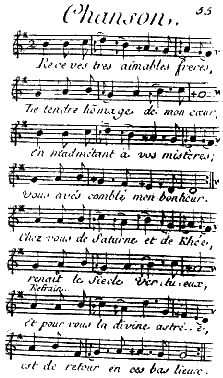 Chanson..
55
Recevés tres aimables freres,
Le tendre hômages de mon cœur,
en m'admétant à vos mistéres;
vous avés comblé mon bonheur.
Chez vous de Saturne et de Rhée,
renait le Siecle Ver.tu.eux,
Refrain..
et pour vous la divine astré..e,
est de retour en ces bas lieux.